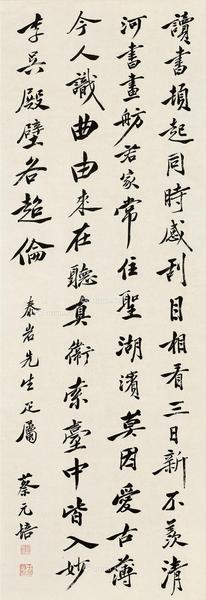 讀書損起同時感刮目相看三日新不羨清
河書畫舫君家常住聖湖濱莫因愛古薄
今人識曲由來在聽真衛索臺中皆入妙
李吳殿壁各超倫
泰岩先生正屬
蔡元培